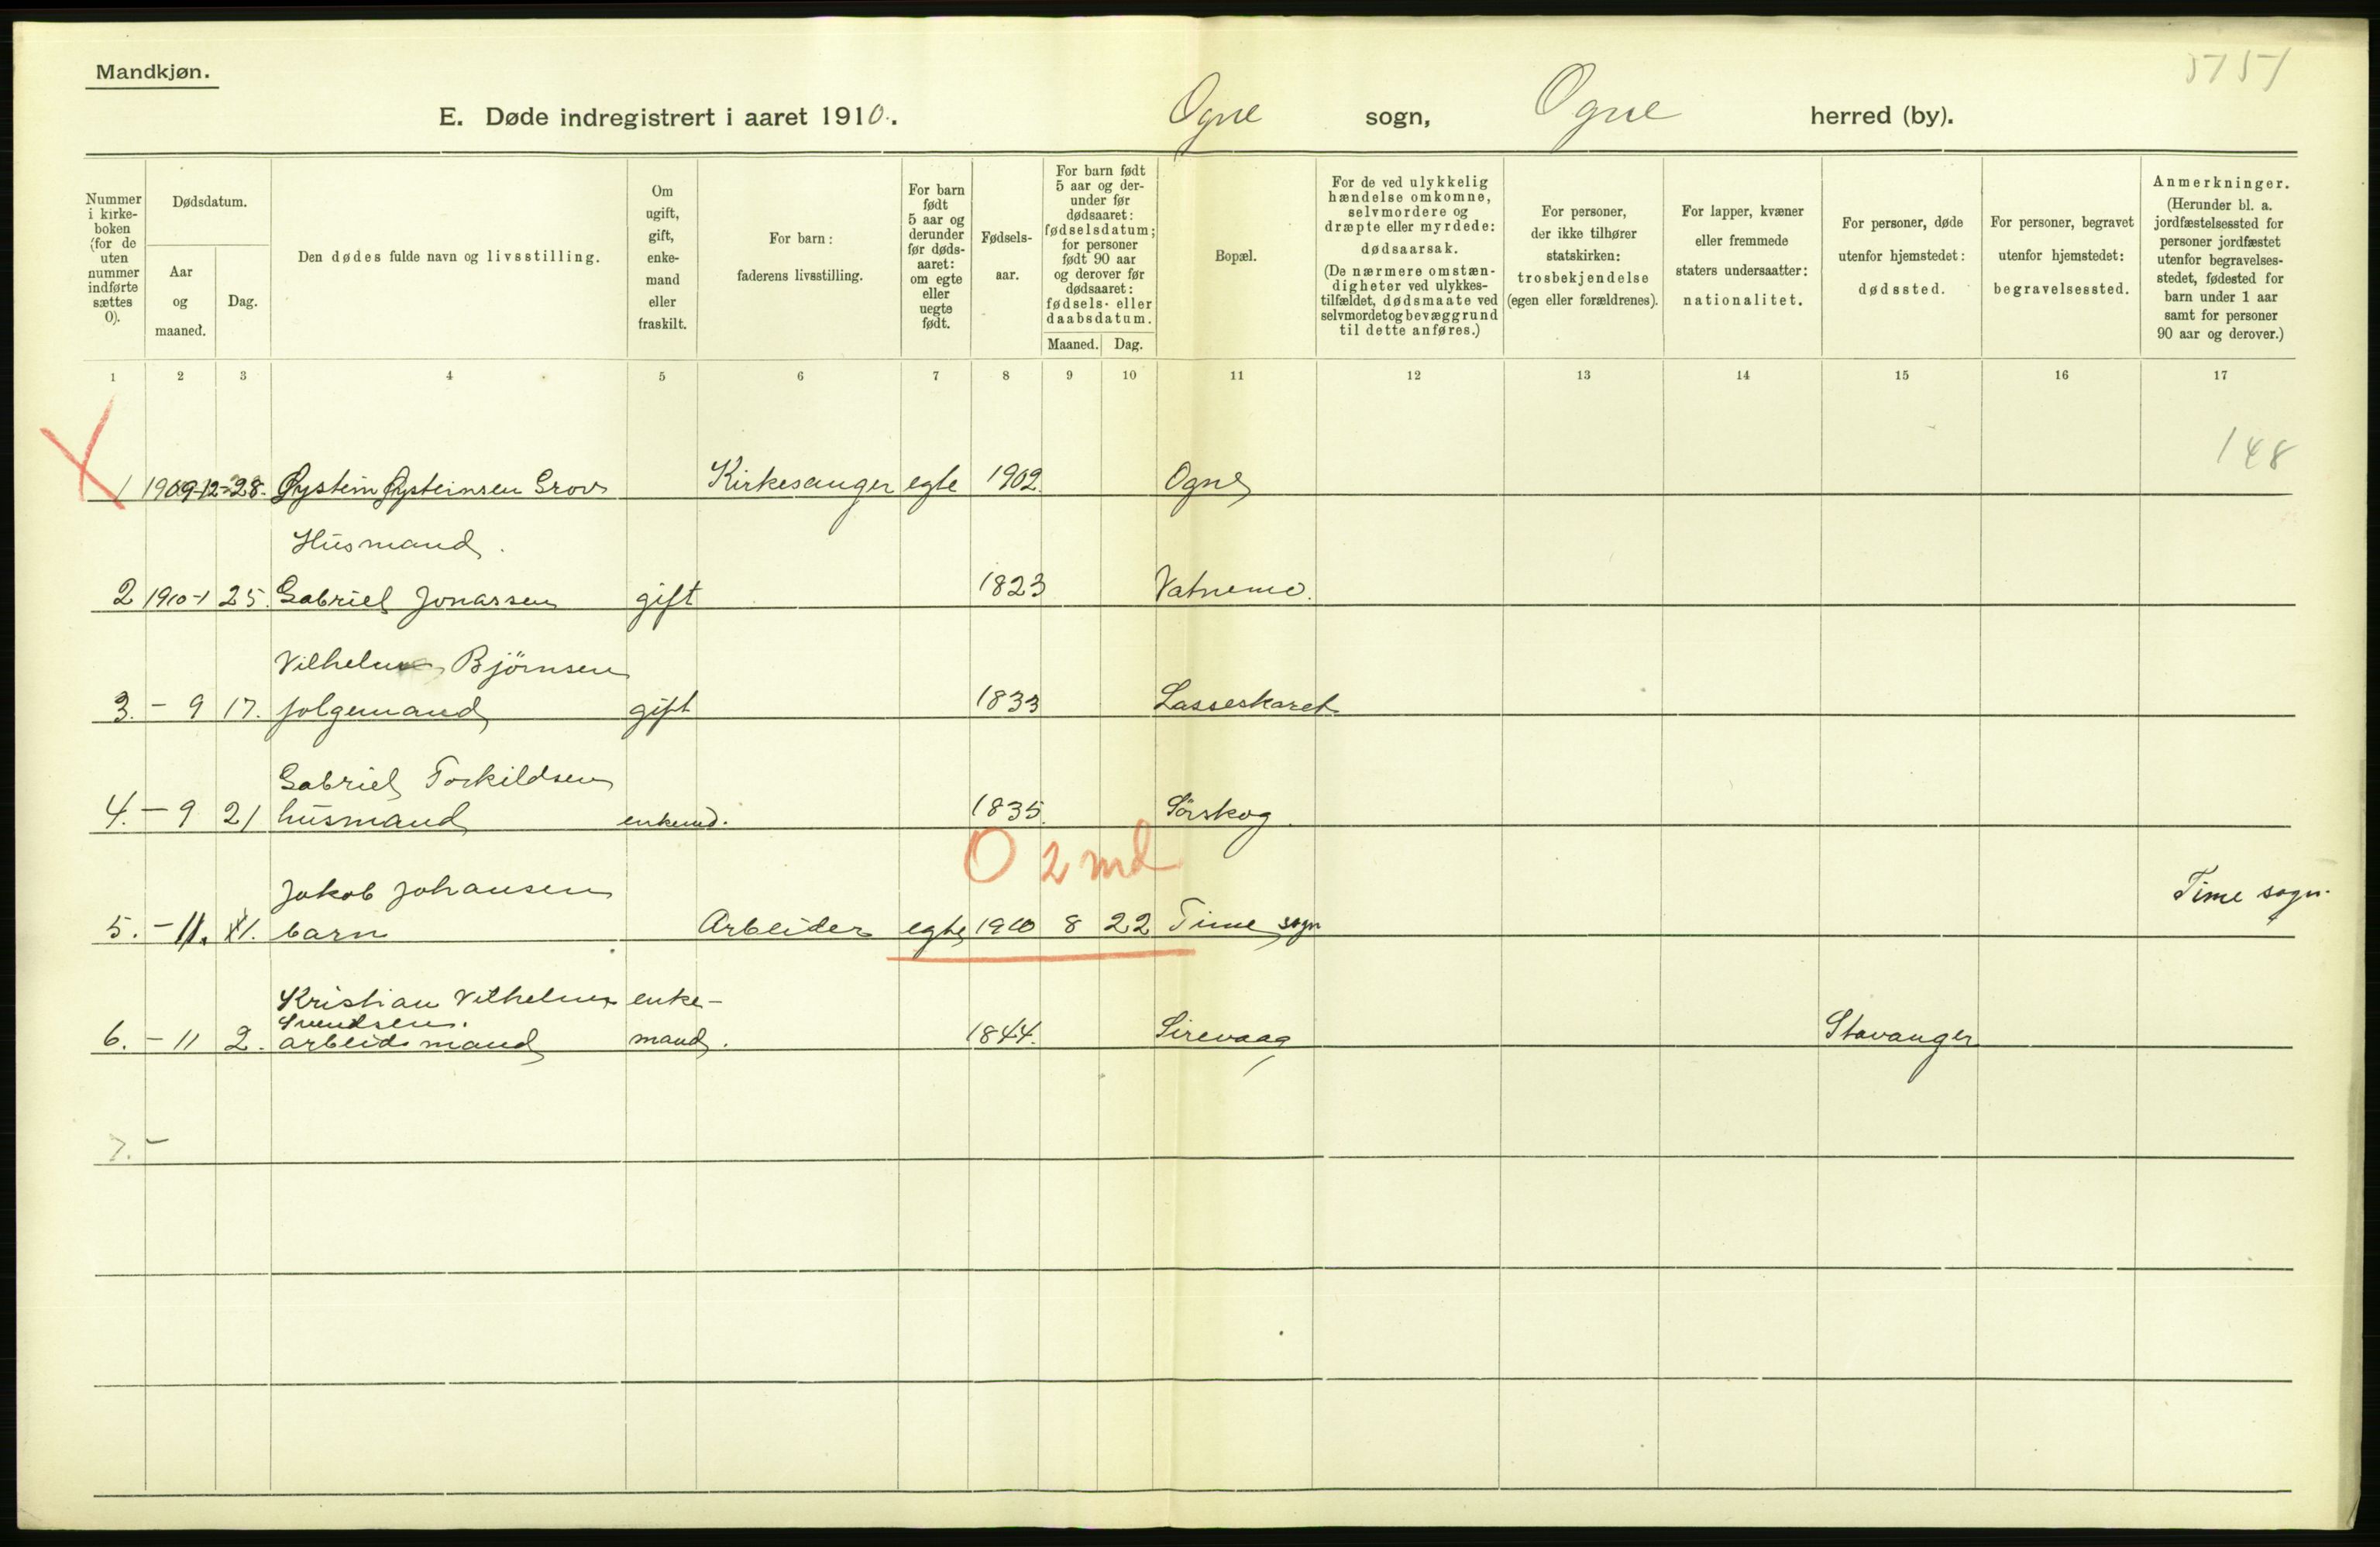 Mandkjøn.
5151
E. Døde indregistrert i aaret 1910. Ogne sogn, Ogne herred (by).
Nummer i kirke-boken (for de uten nummer indførte sættes 0).
Dødsdatum.
Aar og maaned.
Dag.
Den dødes fulde navn og livsstilling.
Om ugift, gift, enke-mand eller fraskilt.
For barn: faderens livsstilling.
For barn født 5 aar og derunder før døds-aaret: om egte eller uegte født.
Fødsels-aar.
For barn født 5 aar og der-under før dødsaaret: fødselsdatum; for personer født 90 aar og derover før dødsaaret: fødsels- eller daabsdatum.
Maaned. Dag.
Bopæl.
For de ved ulykkelig hændelse omkomne, selvmordere og dræpte eller myrdede: dødsaarsak. (De nærmere omstæn-digheter ved ulykkes-tilfældet, dødsmaate ved selvmord og bevæggrund til dette anføres.)
For personer, der ikke tilhører statskirken: trosbekjendelse (egen eller forældrenes).
For lapper, kvæner eller fremmede staters undersaatter: nationalitet.
For personer, døde utenfor hjemstedet: dødssted.
For personer, begravet utenfor hjemstedet: begravelsessted.
Anmerkninger. (Herunder bl. a. jordfæstelsessted for personer jordfæstet utenfor begravelses-stedet, fødested for barn under 1 aar samt for personer 90 aar og derover.)
1 2 3 4 5 6 7 8 9 10 11 12 13 14 15 16 17
148
1 1909-12-28. Øystein Øysteinsen Grov Kirkesanger egte 1902. Ogne
Husmand.
2 1910-1 25. Gabriel Jonassen gift 1823 Vatnemo.
Vilhelm Björnsen
3. - 9 17. folgemand gift 1833 Lasseskaret
Gabriel Torkildsen
4. - 9 21 husmand enkemd. 1835. Sörskog.
0 2 md
Jakob Johansen Time sogn.
5. - 11. 11. barn Arbeider egte 1910 8 22 Time sogn
Kristian Vilhelm enke-
Svendsen.
6. - 11 2. arbeidsmand mand. 1844. Sirevaag Stavanger
7. -